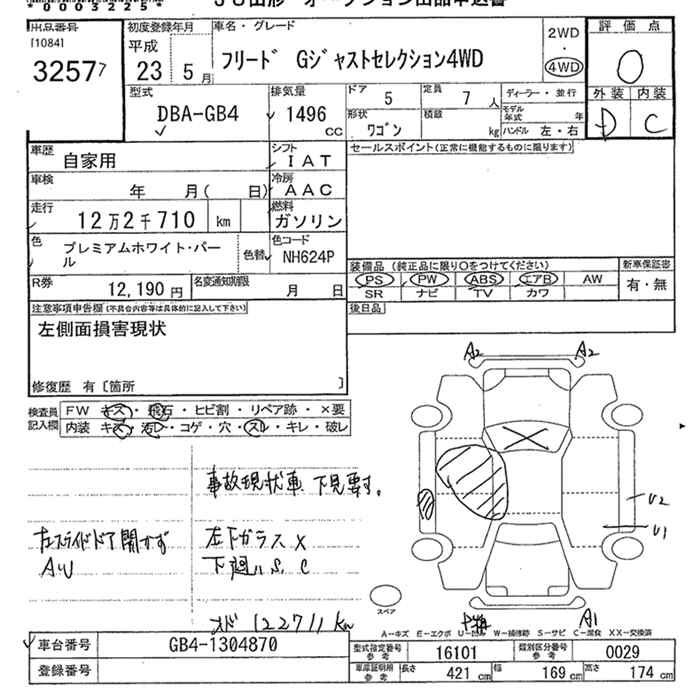 *0003225*
JU山形 オークション出品申込書
出品番号
[1084]
3257 7
初度登録年月
平成
23 5 月
車名・グレード
フリード Gジャストセレクション4WD
2WD
・
4WD
評価点
0
外装 内装
D C
型式
DBA-GB4
排気量
1496
CC
ドア
5
定員
7 人
形状
ワゴン
積載
kg
ディーラー・並行
モデル年式 年
ハンドル 左・右
車歴
自家用
シフト
IAT
セールスポイント(正常に機能するものに限ります)
車検
年 月( 日)
冷房
AAC
走行
12万2千710 km
燃料
ガソリン
色
プレミアムホワイト・パール
色替
色コード
NH624P
装備品 (純正品に限り○をつけてください)
新車保証書
PS PW ABS エアB AW
SR ナビ TV カワ
有・無
R券
12,190 円
名変通知期限
月 日
後日品
注意事項申告欄(不具合内容等は具体的に記入して下さい)
左側面損害現状
修復歴 有 [箇所 ]
検査員記入欄
FW キズ・飛石・ヒビ割・リペア跡・×要
内装 キズ・汚レ・コゲ・穴・スレ・キレ・破レ
A2 A2
事故現状車 下見要。
左スライドドア開かず
AW
左下ガラスX
下廻りS.C
オド 122711km
U2
U1
A1
スペア
A-キズ E-エクボ U-凹 W-補修跡 S-サビ C-腐食 XX-交換済
車台番号
GB4-1304870
型式指定番号
参考
16101
類別区分番号
参考
0029
登録番号
車庫証明用
参考
長さ 421 cm 幅 169 cm 高さ 174 cm